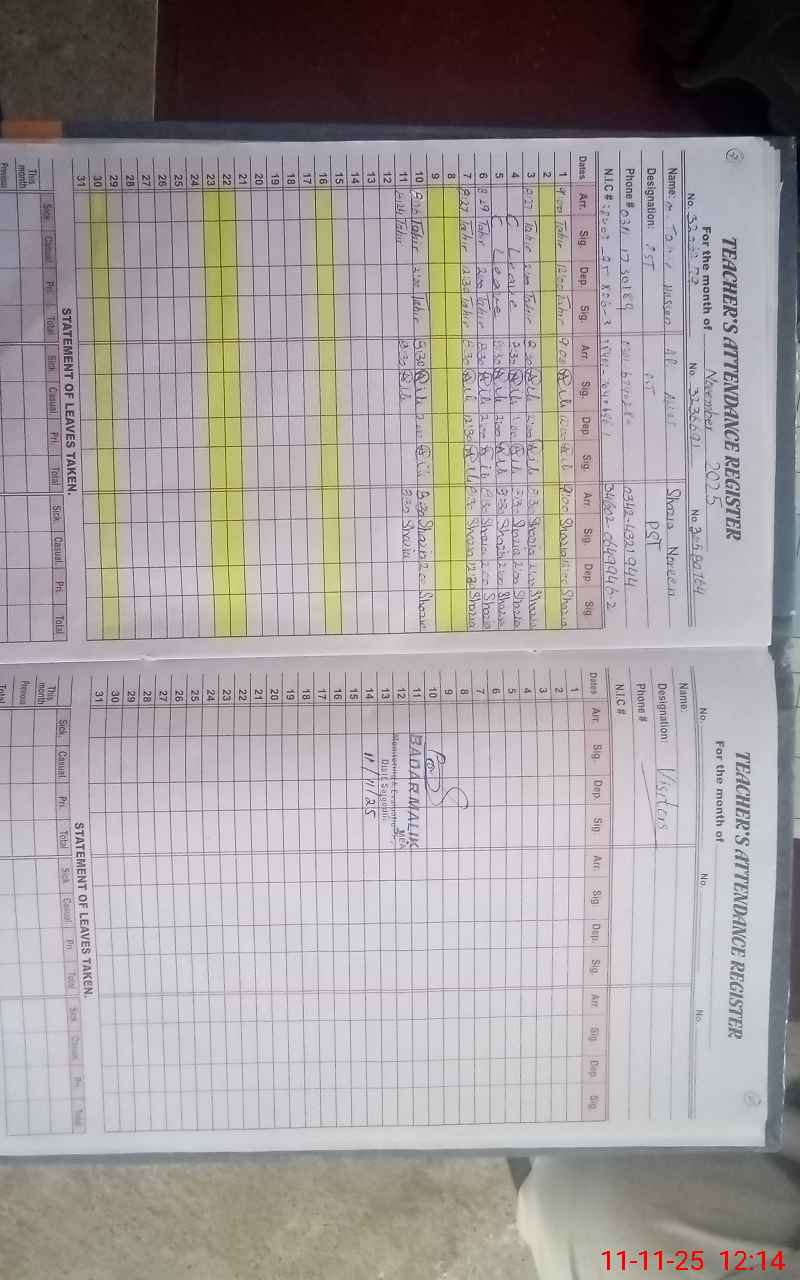 TEACHER'S ATTENDANCE REGISTER
For the month of November 2025
No. No. 3236691 No. 30580764
Name: Tahir Hassan Shazia Noreen
Designation: PST PST PST
Phone # 0342-4321944
N.I.C #
Dates Arr. Sig. Dep Sig. Arr Sig. Dep. Sig. Arr Sig Dep. Sig
1 9:00 Tahir 12:00 Tahir 9:00 12:00 9:00 Shazia 12:00 Shazia
2
3 8:27 Tahir 2:00 Tahir 8:30 2:00 8:30 Shazia 2:00 Shazia
4 C Leave 8:30 2:00 8:30 Shazia 2:00 Shazia
5 C Leave 8:30 2:00 8:30 Shazia 2:00 Shazia
6 8:29 Tahir 2:00 Tahir 8:30 2:00 8:30 Shazia 2:00 Shazia
7 8:27 Tahir 12:30 Tahir 8:30 12:30 8:30 Shazia 12:30 Shazia
8
9
10 Tahir 2:00 Tahir 8:30 2:00 8:30 Shazia 2:00 Shazia
11 Tahir 8:30 8:30 Shazia
12
13
14
15
16
17
18
19
20
21
22
23
24
25
26
27
28
29
30
31
STATEMENT OF LEAVES TAKEN.
Sick Casual Pri. Total Sick Casual Pri. Total Sick Casual. Pri. Total
This month
Previous
TEACHER'S ATTENDANCE REGISTER
For the month of
No. No. No.
Name:
Designation: Visitors
Phone #
N.I.C #
Dates Arr. Sig. Dep. Sig Arr. Sig. Dep. Sig. Arr. Sig. Dep. Sig.
1
2
3
4
5
6
7
8
9
10
11 BADAR MALIK
12 MEA
Monitoring & Evaluation
13 Distt Sargodha
14 11/11/25
15
16
17
18
19
20
21
22
23
24
25
26
27
28
29
30
31
STATEMENT OF LEAVES TAKEN.
Sick. Casual. Pri. Total Sick Casual. Pri. Total Sick Casual. Pri. Total
This month
Previous
Total
11-11-25 12:14